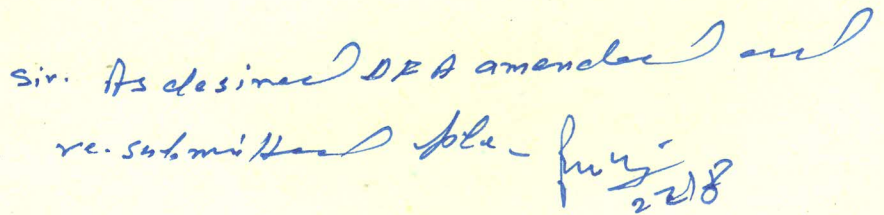 Sir. As desired DFA amended and
re. submitted pls -
22/8